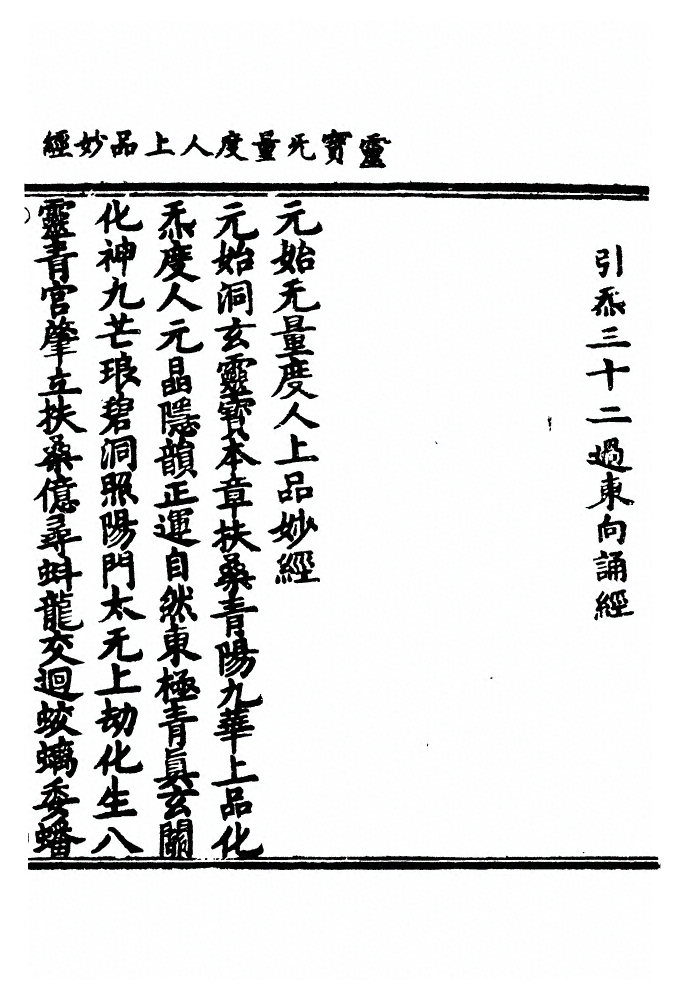 靈寶无量度人上品妙經
引炁三十二過東向誦經
元始无量度人上品妙經
元始洞玄靈寶本章扶桑青陽九華上品化
炁度人元晶隱韻正運自然東極青眞玄關
化神九芒琅碧洞照陽門太无上劫化生八
靈青宮肇立扶桑億尋虯龍交迴蛟螭委蟠